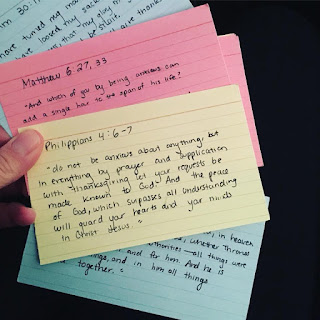 have turned my mou
have loosed my sack
that my glory m
be silent.
Matthew 6:27, 33
"And which of you by being anxious can
add a single hair to the span of his life?
Philippians 4:6-7
"do not be anxious about anything, but
in everything by prayer and supplication
with thanksgiving let your requests be
made known to God. And the peace
of God, which surpasses all understanding
will guard your hearts and your minds
in Christ Jesus."
in heaven
whether thrones
authorities—all things were
and for him. And he is
things, and in him all things
together."